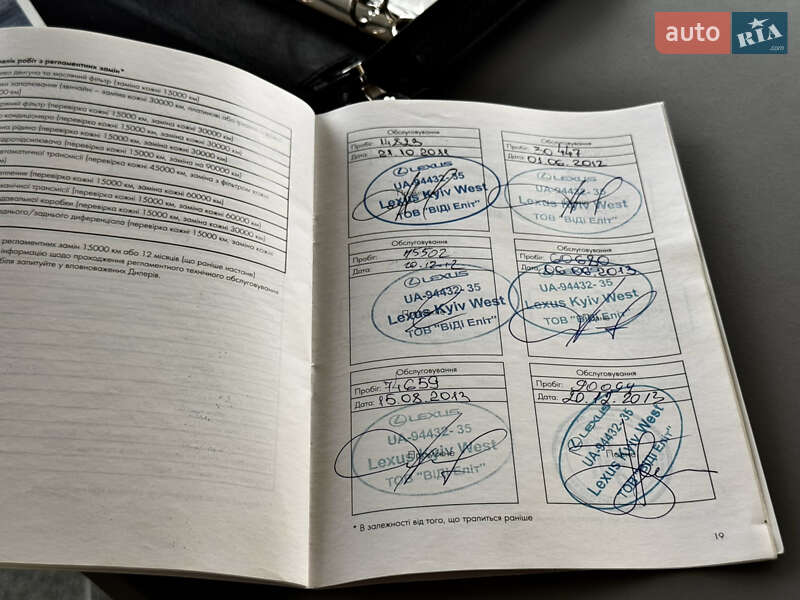 auto RIA .com
...елік робіт з регламентних замін*
двигуна та масляний фільтр (заміна кожні 15000 км)
запалювання (звичайні – заміна кожні 30000 км, платинові або
фільтр (перевірка кожні 15000 км, заміна кожні 30000 км)
кондиціонера (перевірка кожні 15000 км, заміна кожні 30000 км)
рідина (перевірка кожні 15000 км, заміна кожні 30000 км)
(перевірка кожні 15000 км, заміна на 90000 км)
автоматичної трансмісії (перевірка кожні 45000 км, заміна з фільтром кожні
(перевірка кожні 15000 км, заміна кожні 60000 км)
механічної трансмісії (перевірка кожні 15000 км, заміна кожні 60000 км)
коробки (перевірка кожні 15000 км, заміна кожні 30000 км)
переднього/заднього диференціала (перевірка кожні 15000 км, заміна кожні
регламентних замін 15000 км або 12 місяців (що раніше настане)
інформацію щодо проходження регламентного технічного обслуговування
запитуйте у уповноважених Дилерів.
Обслуговування
Пробіг:
Дата: 21.10.2011
LEXUS
UA-94432-35
Lexus Kyiv West
ТОВ "ВІДІ Еліт"
Обслуговування
Пробіг: 30447
Дата: 01.06.2012
LEXUS
UA-94432-35
Lexus Kyiv West
ТОВ "ВІДІ Еліт"
Обслуговування
Пробіг:
Дата: 20.12.12
LEXUS
UA-94432-35
Lexus Kyiv West
ТОВ "ВІДІ Еліт"
Обслуговування
Пробіг: 60690
Дата: 06.06.2013
LEXUS
UA-94432-35
Lexus Kyiv West
ТОВ "ВІДІ Еліт"
Обслуговування
Пробіг: 74659
Дата: 15.08.2013
LEXUS
UA-94432-35
Lexus Kyiv West
ТОВ "ВІДІ Еліт"
Обслуговування
Пробіг:
Дата: 20.12.2013
LEXUS
UA-94432-35
Lexus Kyiv West
ТОВ "ВІДІ Еліт"
* В залежності від того, що трапиться раніше
19